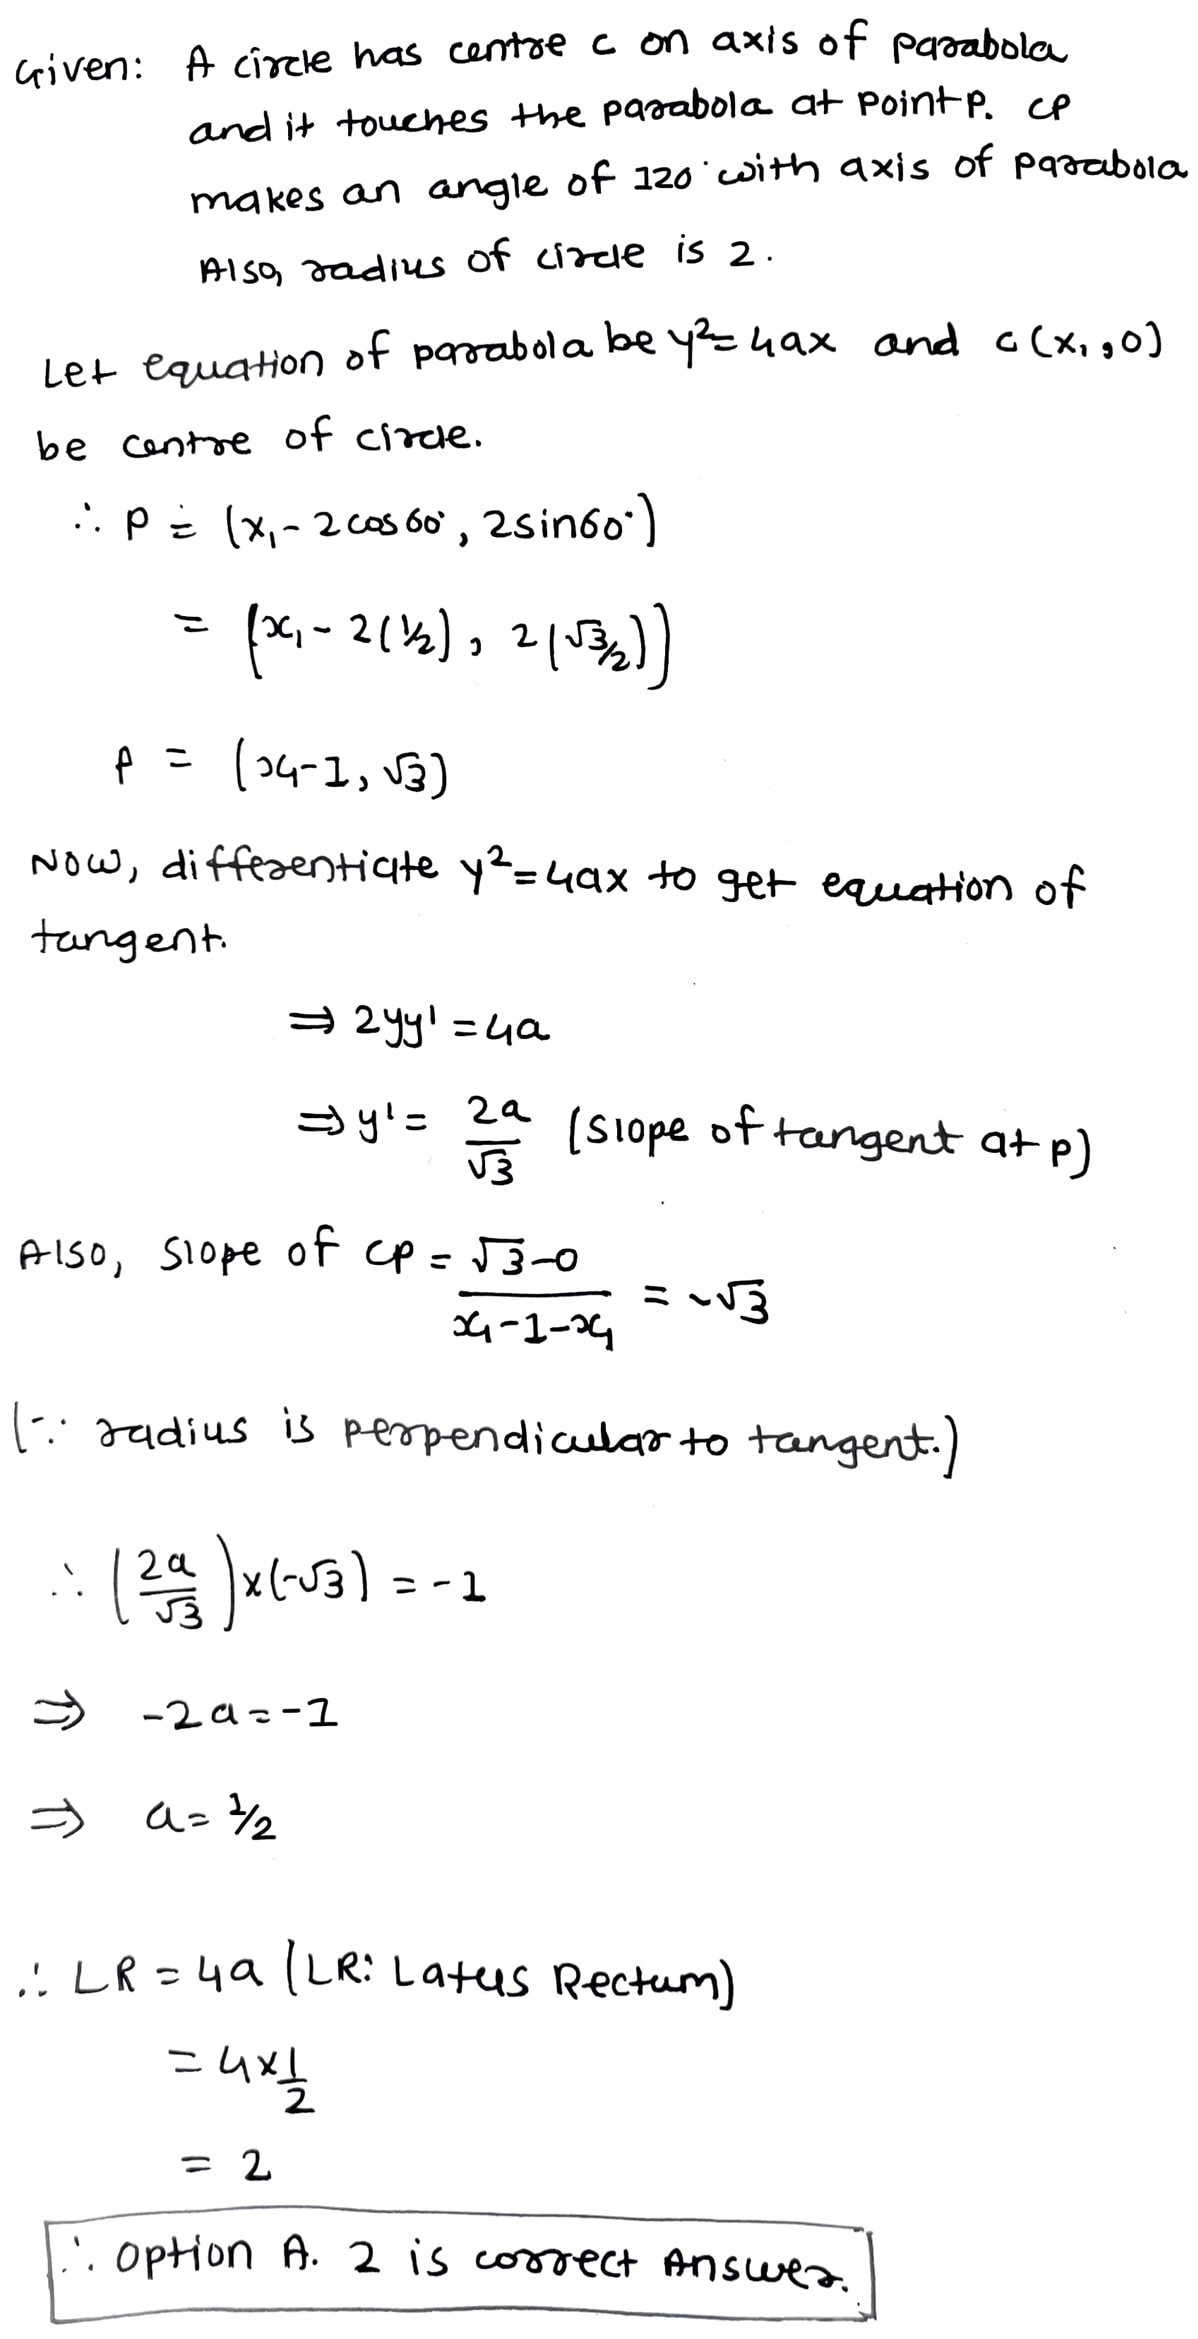 Given: A circle has centre c on axis of parabola
and it touches the parabola at point P. CP
makes an angle of 120° with axis of parabola
Also, radius of circle is 2.
Let equation of parabola be y²=4ax and c(x₁,0)
be centre of circle.
∴ P = (x₁-2cos60°, 2sin60°)
= (x₁-2(1/2), 2(√3/2))
P = (x₁-1, √3)
Now, differentiate y²=4ax to get equation of
tangent.
⇒ 2yy' = 4a
⇒ y' = 2a/√3 (slope of tangent at P)
Also, slope of CP = (√3-0)/(x₁-1-x₁) = -√3
(∵ radius is perpendicular to tangent.)
∴ (2a/√3)×(-√3) = -1
⇒ -2a=-1
⇒ a=1/2
∴ LR = 4a (LR: Latus Rectum)
= 4×1/2
= 2
∴ option A. 2 is correct Answer.